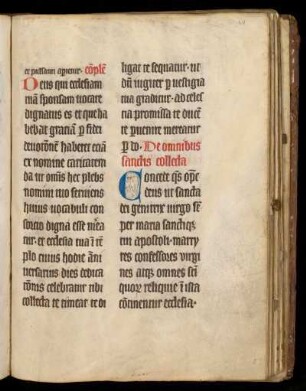 et pulsanti aperietur. cōplē
Deus qui ecclesiam
tuā sponsam vocare
dignatus es et que ha
bebat graciā ꝑ fidei
deuotōnē haberet ecia
ex nomine
da ut omīs hec plebs
nomini tuo seruiens
huius vocabuli con
sorcio digna esse mea
tur et ecclesia tua ī tē
plo cuius hodie āni
uersarius dies dedica
cōnis celebratur tibi
collecta te timeat te di
ligat te sequatur ut
dū iugiter ꝑ vestigia
tua graditur ad celes
na promissa te ducēte
ꝑuenire mereatur
ꝑ do. De omnibus
sanctis collecta
Concede qs oīpē
deus ut sancta
dei genitrix virgo sē
per maria sanctiqꝫ
tui apostoli martyres
confessores virgi
nes atqꝫ omnes sci
quoꝝ reliquie ī ista
cōtinentur ecclesia.